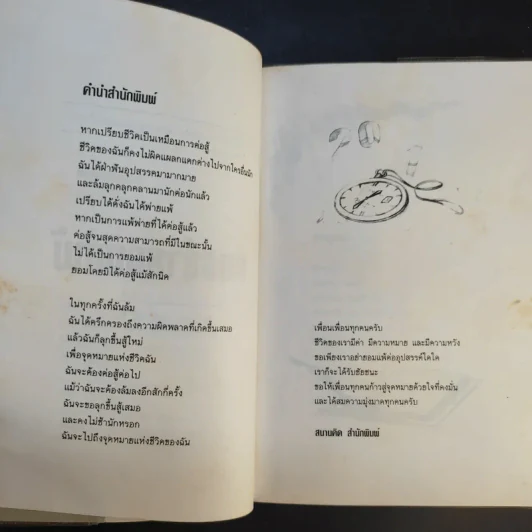 คำนำสำนักพิมพ์
หากเปรียบชีวิตเป็นเหมือนการต่อสู้
ชีวิตของฉันก็คงไม่ผิดแผลกแตกต่างไปจากใครอื่นนัก
ฉันได้ฝ่าฟันอุปสรรคมามากมาย
และล้มลุกคลุกคลานมานักต่อนักแล้ว
เปรียบได้ดั่งฉันได้พ่ายแพ้
หากเป็นการแพ้พ่ายที่ได้ต่อสู้แล้ว
ต่อสู้จนสุดความสามารถที่มีในขณะนั้น
ไม่ได้เป็นการยอมแพ้
ยอมโดยมิได้ต่อสู้แม้สักนิด
ในทุกครั้งที่ฉันล้ม
ฉันได้ตรึกครองถึงความผิดพลาดที่เกิดขึ้นเสมอ
แล้วฉันก็ลุกขึ้นสู้ใหม่
เพื่อจุดหมายแห่งชีวิตฉัน
ฉันจะต้องต่อสู้ต่อไป
แม้ว่าฉันจะต้องล้มลงอีกสักกี่ครั้ง
ฉันจะขอลุกขึ้นสู้เสมอ
และคงไม่ช้านักหรอก
ฉันจะไปถึงจุดหมายแห่งชีวิตของฉัน
เพื่อนเพื่อนทุกคนครับ
ชีวิตของเรามีค่า มีความหมาย และมีความหวัง
ขอเพียงเราอย่ายอมแพ้ต่ออุปสรรค์ใดใด
เราก็จะได้รับชัยชนะ
ขอให้เพื่อนทุกคนก้าวสู่จุดหมายด้วยใจที่คงมั่น
และได้สมความมุ่งมาดทุกคนครับ
สมานคิด สำนักพิมพ์